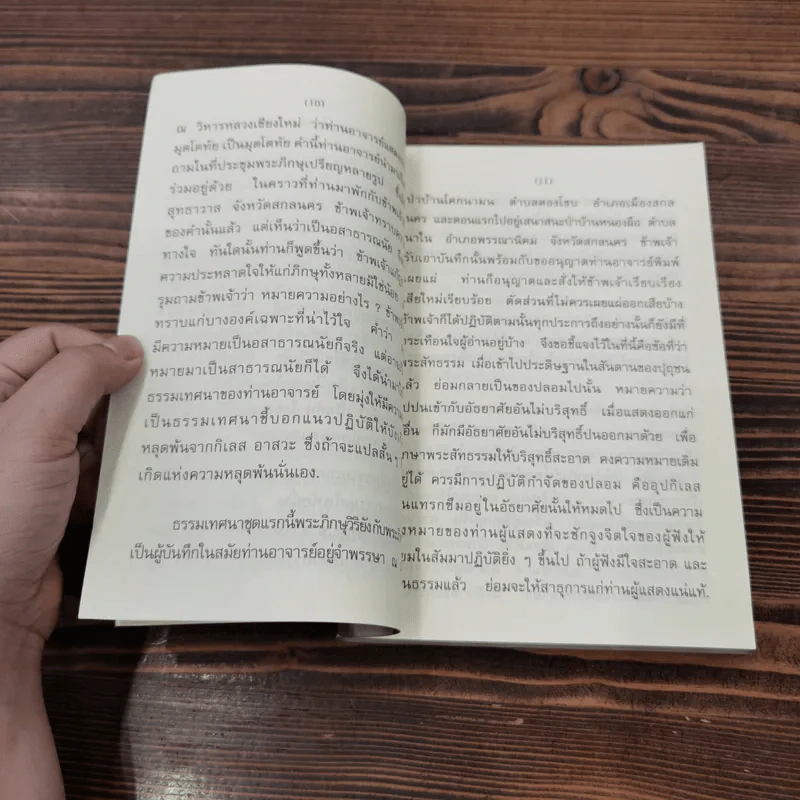 (10)
ณ วิหารหลวงเชียงใหม่ ว่าท่านอาจารย์แสดง
มุตโตทัย เป็นมุตโตทัย คำนี้ท่านอาจารย์นำมา
ถามในที่ประชุมพระภิกษุเปรียญหลายรูป
ร่วมอยู่ด้วย ในคราวที่ท่านมาพักกับข้าพเจ้า
สุทธาวาส จังหวัดสกลนคร ข้าพเจ้าทราบ
ของคำนั้นแล้ว แต่เห็นว่าเป็นอสาธารณนัย
ทางใจ ทันใดนั้นท่านก็พูดขึ้นว่า ข้าพเจ้า
ความประหลาดใจให้แก่ภิกษุทั้งหลายมิใช่น้อย
รุมถามข้าพเจ้าว่า หมายความอย่างไร ?
ทราบแก่บางองค์เฉพาะที่น่าไว้ใจ คำว่า
มีความหมายเป็นอสาธารณนัยก็จริง แต่
หมายมาเป็นสาธารณนัยก็ได้ จึงได้นำมา
ธรรมเทศนาของท่านอาจารย์ โดยมุ่งให้มีความ
เป็นธรรมเทศนาชี้บอกแนวปฏิบัติให้
หลุดพ้นจากกิเลส อาสวะ ซึ่งถ้าจะแปลสั้น ๆ
เกิดแห่งความหลุดพ้นนั่นเอง.
ธรรมเทศนาชุดแรกนี้พระภิกษุวิริยังกับพระ
เป็นผู้บันทึกในสมัยท่านอาจารย์อยู่จำพรรษา ณ
(11)
ป่าบ้านโคกนามน ตำบลตองโขบ อำเภอเมืองสกล
นคร และตอนแรกไปอยู่เสนาสนะป่าบ้านหนองผือ ตำบล
นาใน อำเภอพรรณานิคม จังหวัดสกลนคร ข้าพเจ้า
รับเอาบันทึกนั้นพร้อมกับขออนุญาตท่านอาจารย์พิมพ์
เผยแผ่ ท่านก็อนุญาตและสั่งให้ข้าพเจ้าเรียบเรียง
เสียใหม่เรียบร้อย ตัดส่วนที่ไม่ควรเผยแผ่ออกเสียบ้าง
ข้าพเจ้าก็ได้ปฏิบัติตามนั้นทุกประการถึงอย่างนั้นก็ยังมีที่
ระเทือนใจผู้อ่านอยู่บ้าง จึงขอชี้แจงไว้ในที่นี้คือข้อที่ว่า
ระสัทธรรม เมื่อเข้าไปประดิษฐานในสันดานของปุถุชน
ล้ว ย่อมกลายเป็นของปลอมไปนั้น หมายความว่า
ปปนเข้ากับอัธยาศัยอันไม่บริสุทธิ์ เมื่อแสดงออกแก่
อื่น ก็มักมีอัธยาศัยไม่บริสุทธิ์ปนออกมาด้วย เพื่อ
กษาพระสัทธรรมให้บริสุทธิ์สะอาด คงความหมายเดิม
ยู่ได้ ควรมีการปฏิบัติกำจัดของปลอม คืออุปกิเลส
นแทรกซึมอยู่ในอัธยาศัยนั้นให้หมดไป ซึ่งเป็นความ
งหมายของท่านผู้แสดงที่จะชักจูงจิตใจของผู้ฟังให้
ยมในสัมมาปฏิบัติยิ่ง ๆ ขึ้นไป ถ้าผู้ฟังมีใจสะอาด และ
นธรรมแล้ว ย่อมจะให้สาธุการแก่ท่านผู้แสดงแน่แท้.